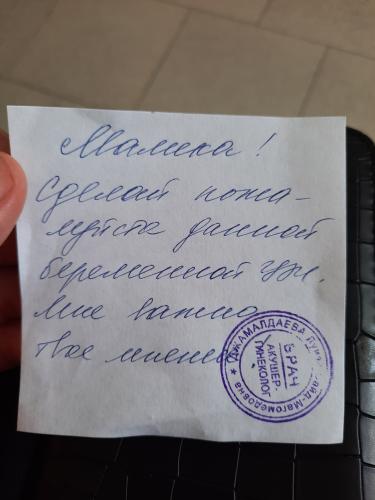 Малика!
Сделай пожа-
луйста данной
беременной узи.
Мне важно
твое мнение.
ДЖАМАЛДАЕВА
Саид-Магомедовна
ВРАЧ
АКУШЕР-
ГИНЕКОЛОГ